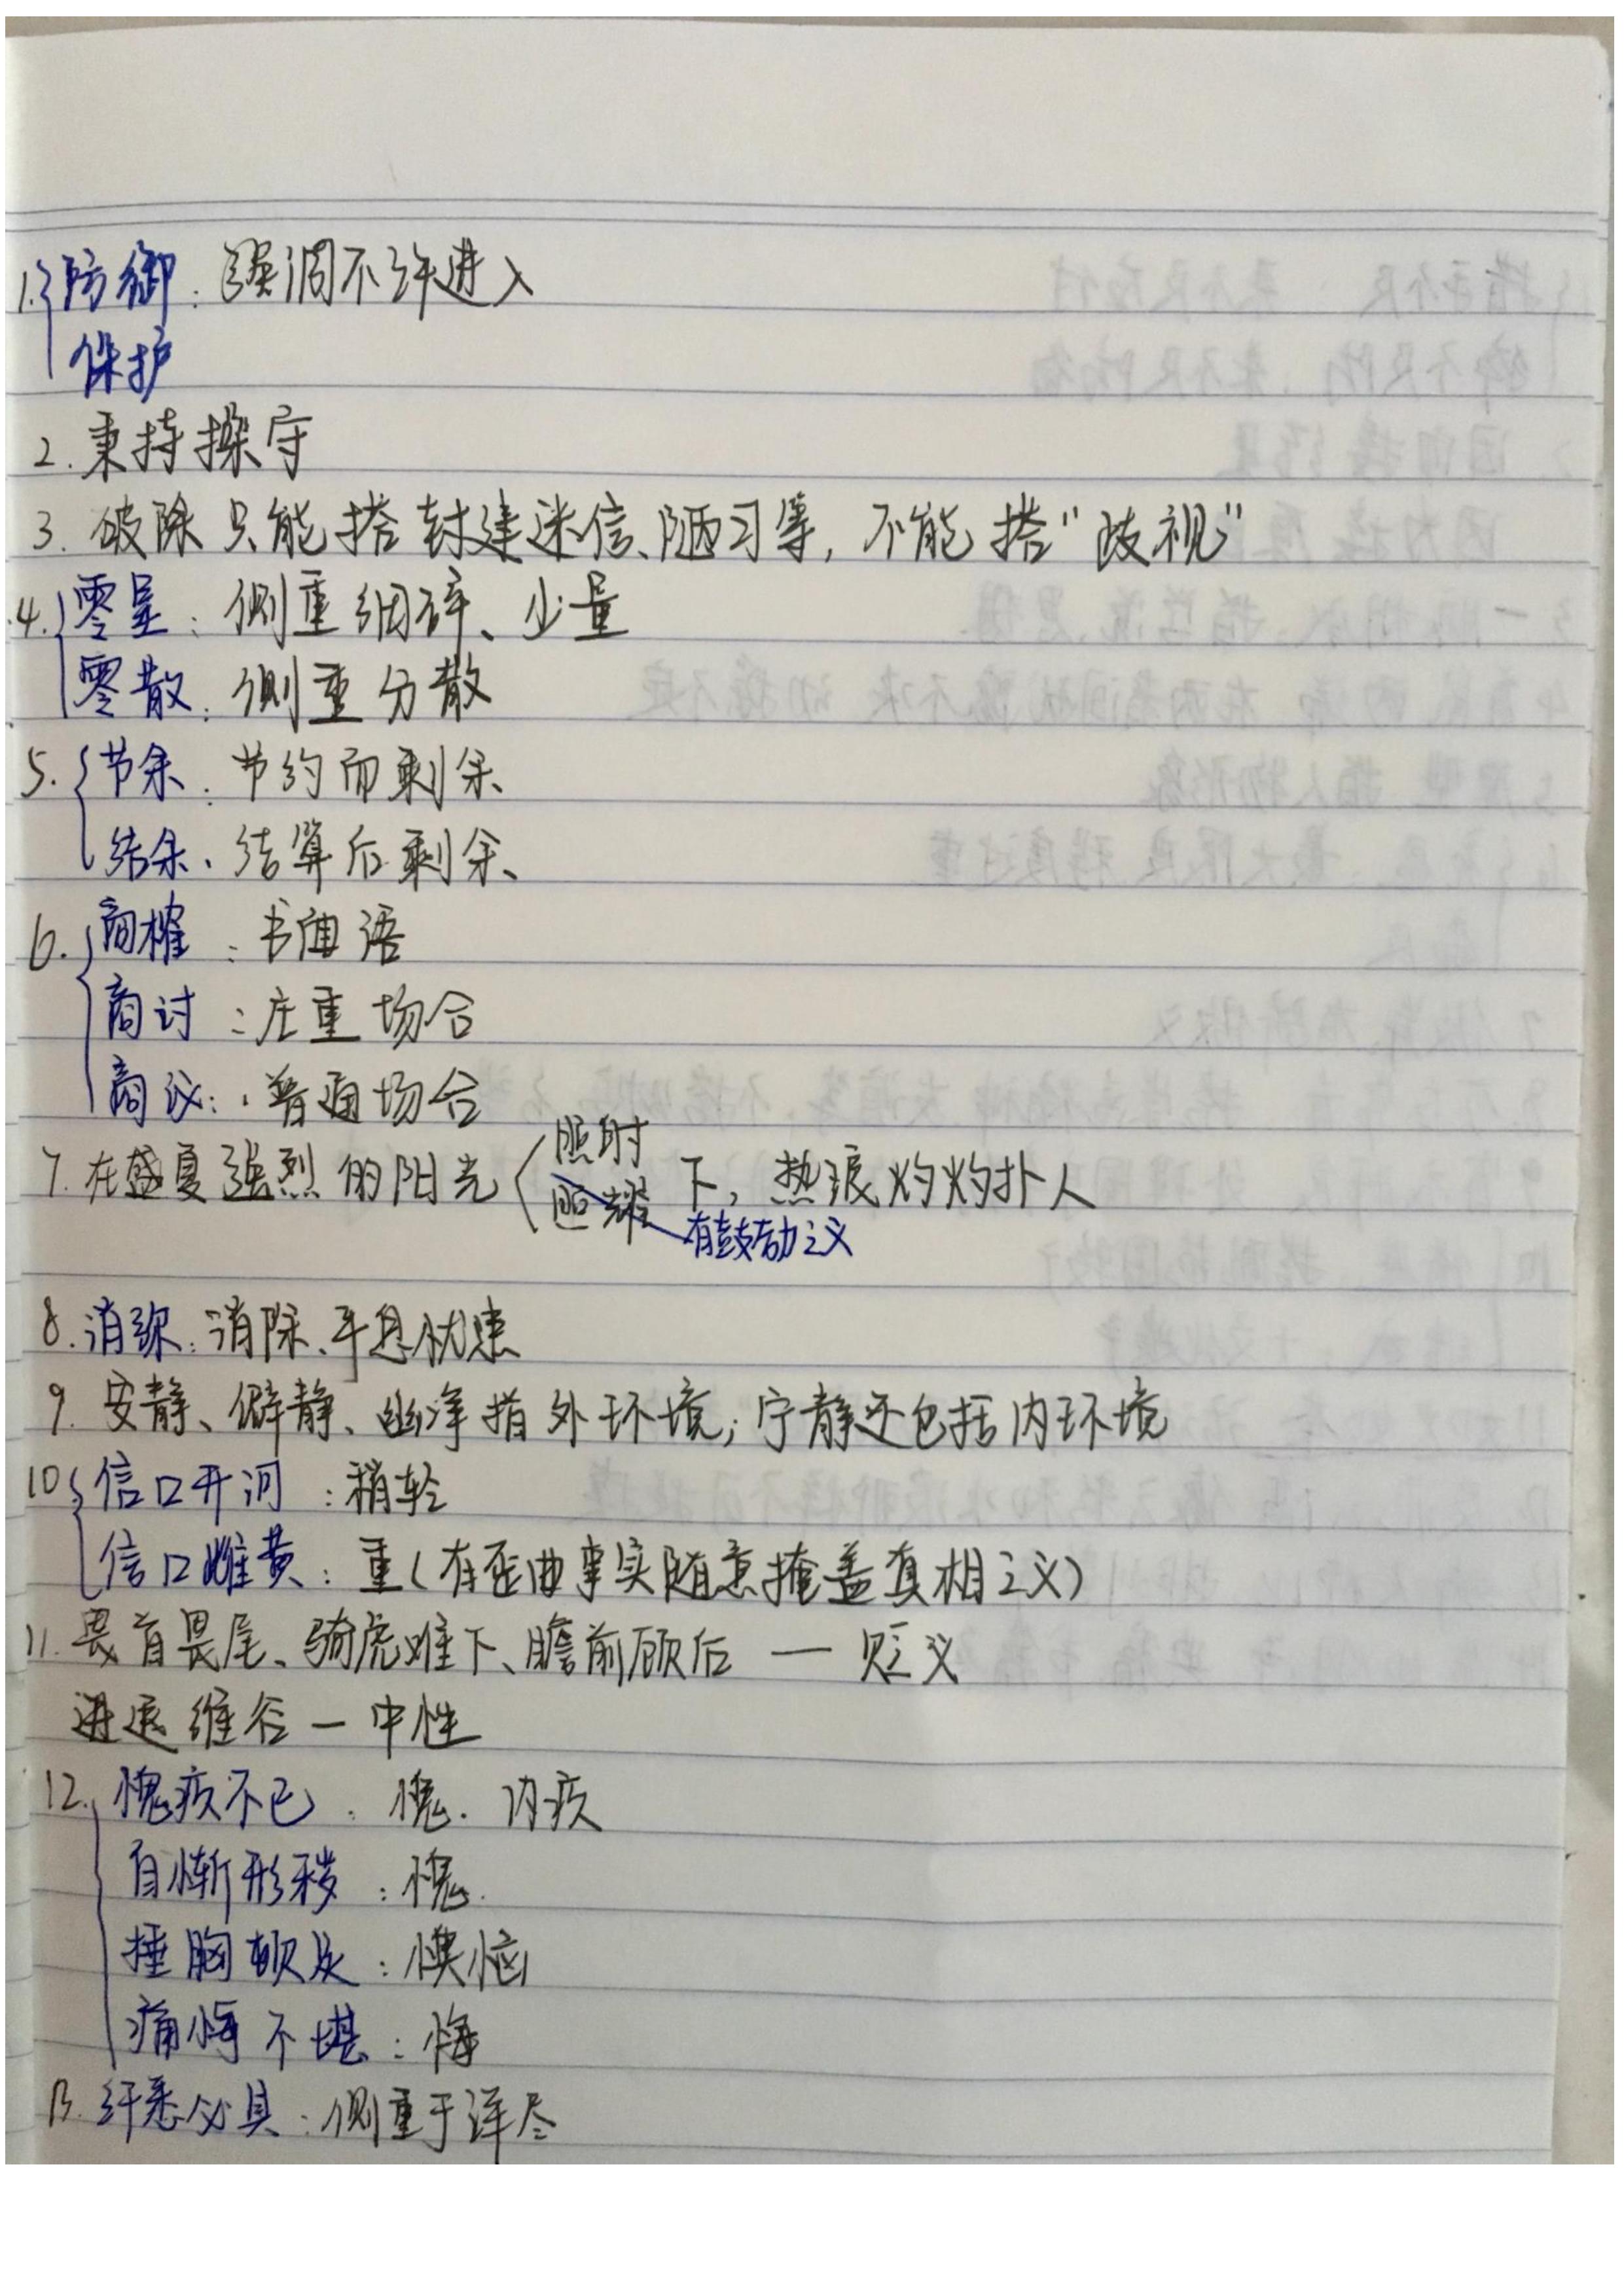 1. 防御：强调不许进入
保护
2. 秉持操守
3. 破除只能搭封建迷信、陋习等，不能搭“歧视”
4. 零星：侧重细碎、少量
零散：侧重分散
5. 节余：节约而剩余
结余：结算后剩余
6. 商榷：书面语
商讨：庄重场合
商议：普通场合
7. 在盛夏强烈的阳光 照射 下，热浪灼灼扑人
照耀 有鼓励之义
8. 消弥：消除、平息忧患
9. 安静、僻静、幽净指外环境；宁静还包括内环境
10 信口开河：稍轻
信口雌黄：重（有歪曲事实随意掩盖真相之义）
11. 畏首畏尾、骑虎难下、瞻前顾后 — 贬义
进退维谷 — 中性
12. 愧疚不已：愧. 内疚
自惭形秽：愧.
捶胸顿足：懊恼
痛悔不堪：悔
13. 纤悉必具：侧重于详尽